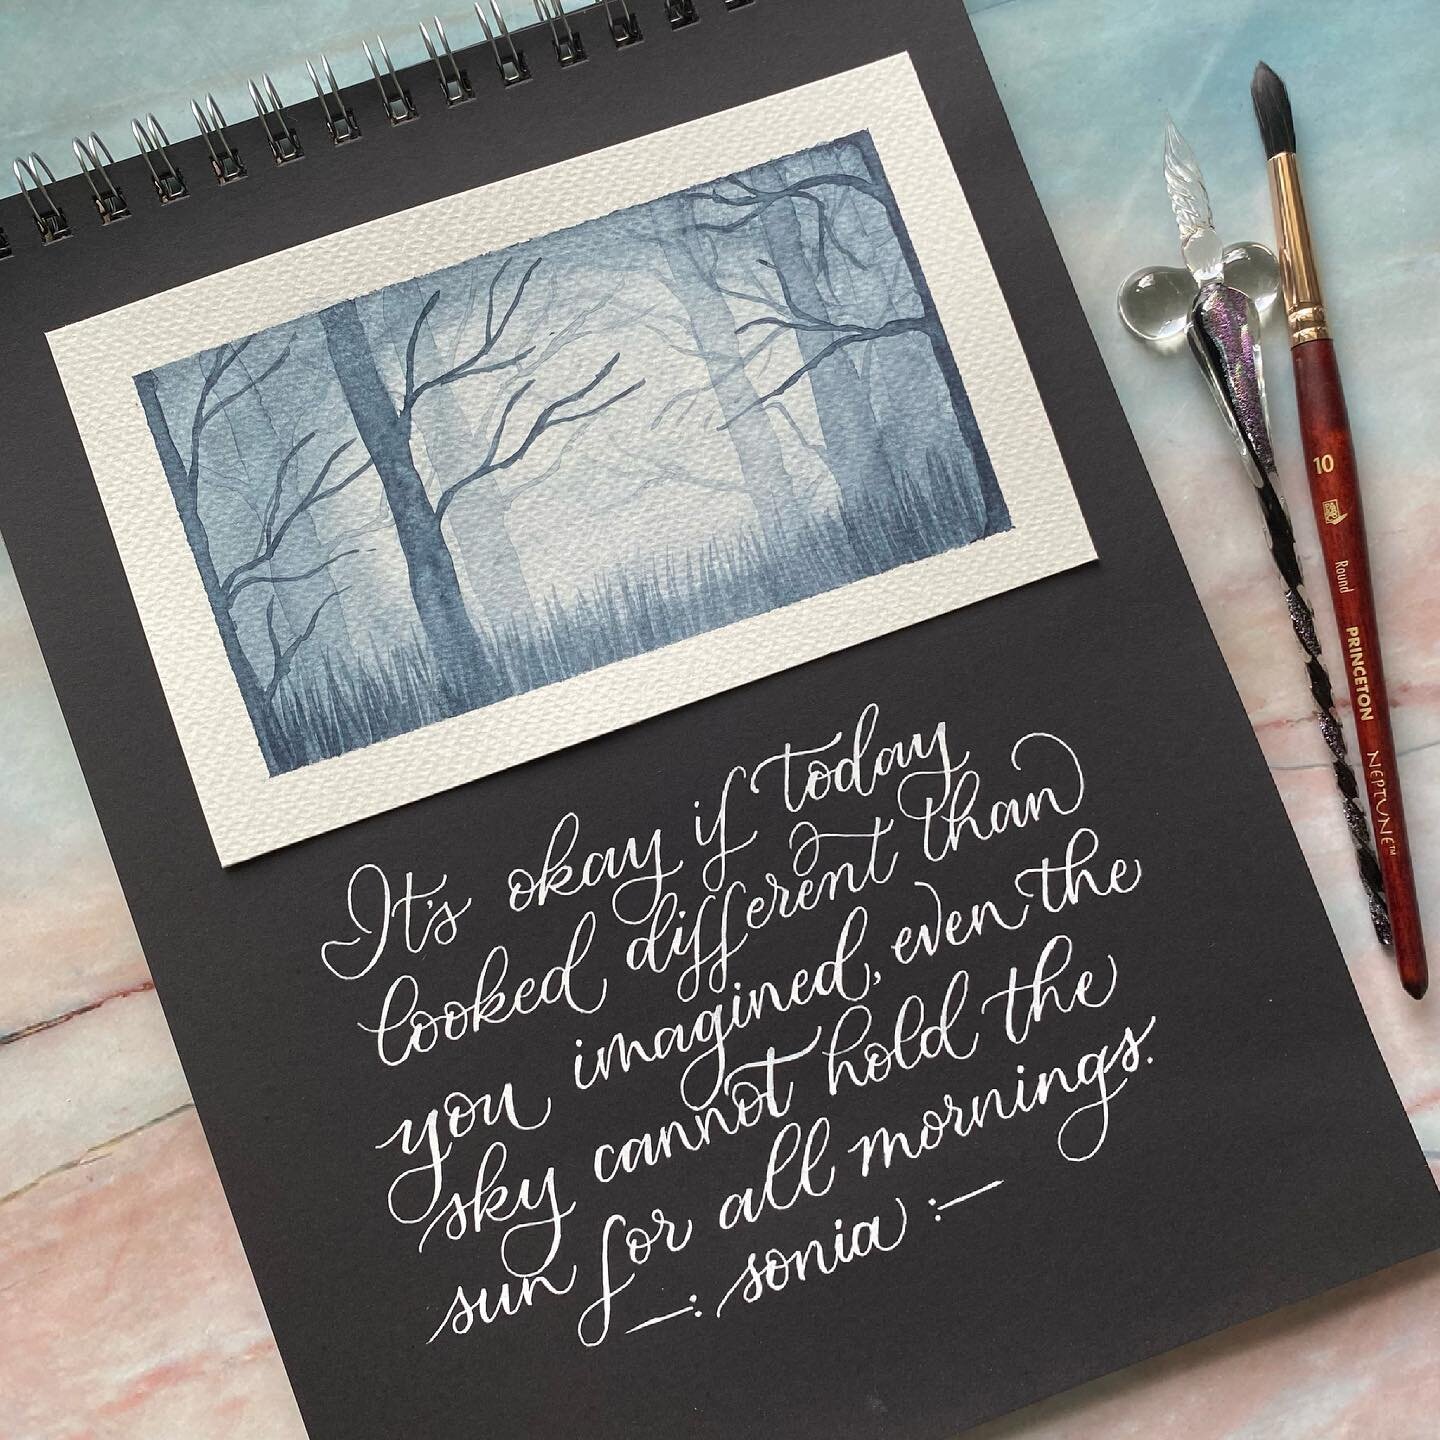 It's okay if today
looked different than
you imagined, even the
sky cannot hold the
sun for all mornings.
—: sonia :—
10
Round
PRINCETON
NEPTUNE™